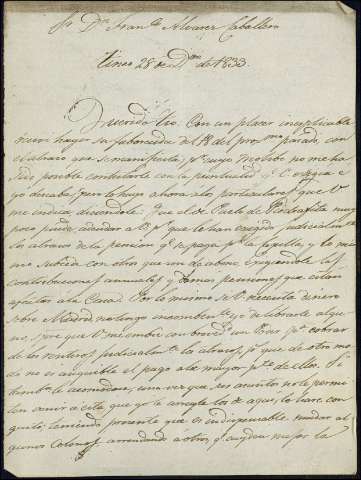 Sr. Dn. Franco. Alvarez Caballero
Tineo 28 de Dbre. de 1833.
Querido tio. Con un placer inesplicable
recivi hayer su faborecida del 18 del proximo pasado, con
el atraso que se manifiesta pr. cuyo motibo no me ha
sido posible contestarle con la puntualidad qe.
yo deseaba, pero lo hago ahora a los particulares que V.
me indica diciendole: Que al de Pueblo de Piedrafita muy
poco puede adeudar a V. pr. que le han exigido judicialmte.
los atrasos de la pension qe. se paga pr. la capilla, y lo mis
mo subcede con otros que
contribuciones annuales y demas pensiones que estan
afectas a la Casa. Por lo mismo si V. necesita dinero
sobre Madrid no tengo incombente. yo de librarle algu
no, sipre que V. me embie con brevedad un Poder pa. cobrar
de los renteros judicialmte. los atrasos, pr. que de otro mo
do no es asequible el pago a la mayor pte. de ellos. Si
tambn. le acomodase, una vez que sus asuntos no le permi
ten venir a esta, que yo le arregle los de aqui, lo hare con
gusto, teniendo presente que es indispensable mudar al
gunos Colonos arrendando a otros, y cuyden mejor la